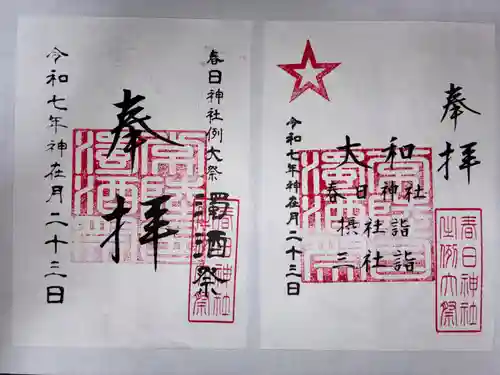 奉拝
春日神社例大祭
濁酒祭
令和七年神在月二十三日
春日神社
奉拝
大和
春日神社
摂社詣
三社詣
令和七年神在月二十三日
春日神社
之例大祭